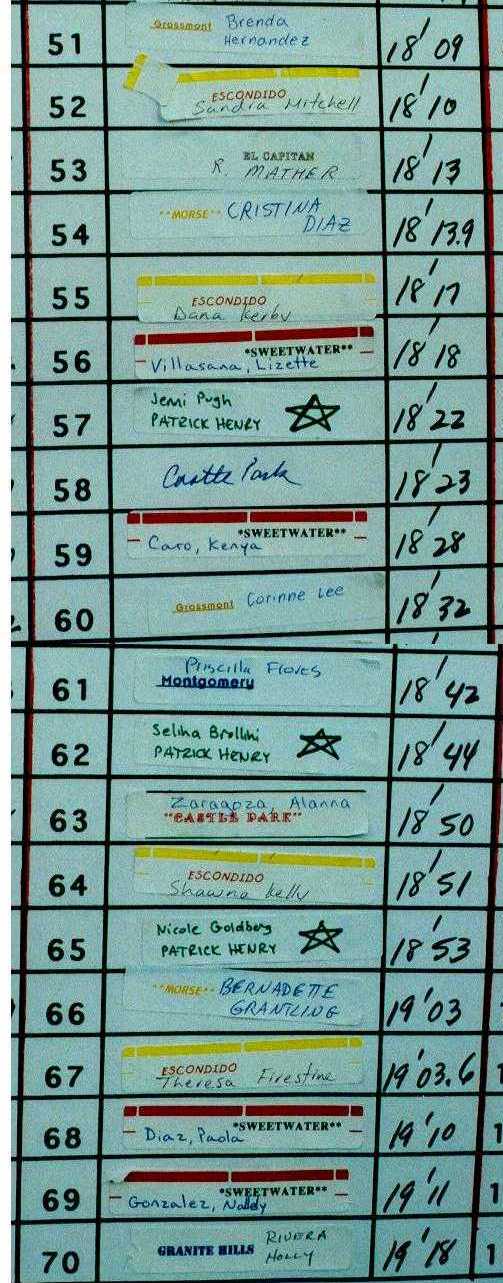 51 Grossmont Brenda 18'09
Hernandez
52 ESCONDIDO 18'10
Sandra Mitchell
53 EL CAPITAN 18'13
R. MATHER
54 **MORSE** CRISTINA 18'13.9
DIAZ
55 ESCONDIDO 18'17
Dana Kerby
56 *SWEETWATER** 18'18
Villasana, Lizette
57 Jemi Pugh 18'22
PATRICK HENRY
58 Castle Park 18'23
59 *SWEETWATER** 18'28
Caro, Kenya
60 Grossmont Corinne Lee 18'32
61 Priscilla Flores 18'42
Montgomery
62 Selina Brollini 18'44
PATRICK HENRY
63 Zaragoza, Alanna 18'50
"CASTLE PARK"
64 ESCONDIDO 18'51
Shawna Kelly
65 Nicole Goldberg 18'53
PATRICK HENRY
66 **MORSE** BERNADETTE 19'03
GRANTLING
67 ESCONDIDO 19'03.6
Theresa Firestine
68 *SWEETWATER** 19'10
Diaz, Paola
69 *SWEETWATER** 19'11
Gonzalez,
70 GRANITE HILLS RIVERA 19'18
HOLLY